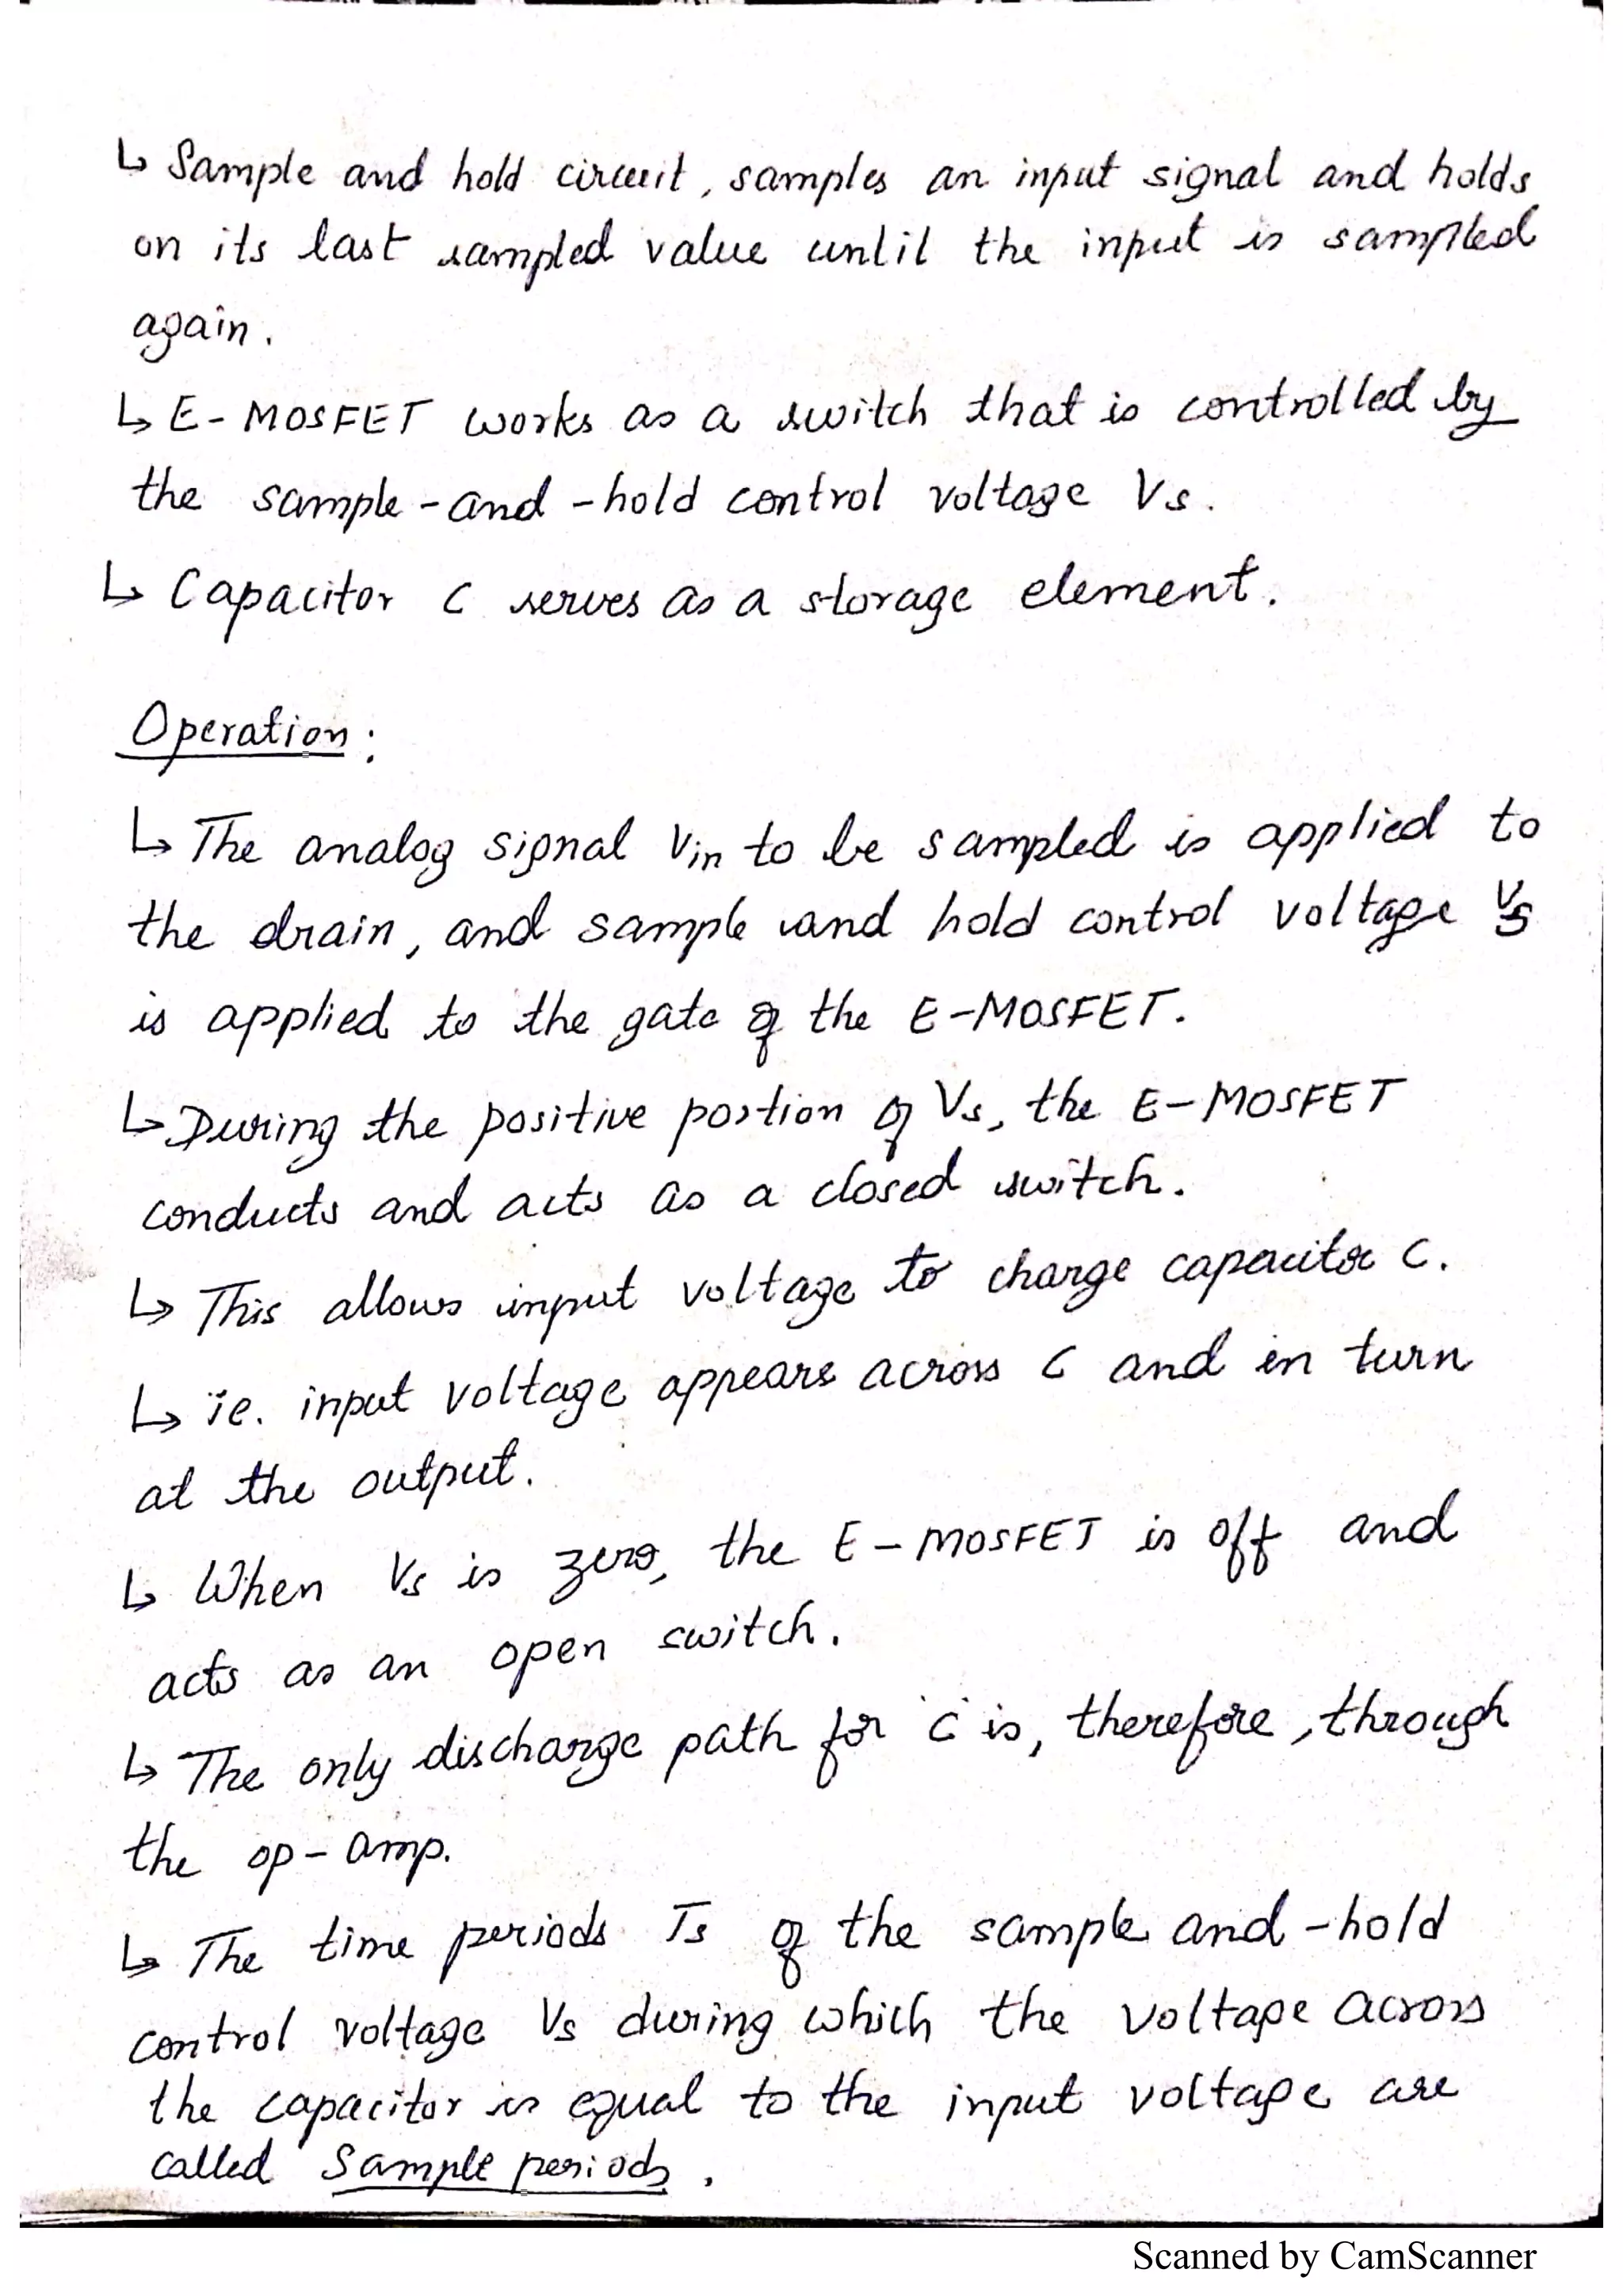 ↳ Sample and hold circuit, samples an input signal and holds
on its last sampled value until the input is sampled
again.
↳ E-MOSFET works as a switch that is controlled by
the sample-and-hold control voltage Vs.
↳ Capacitor C serves as a storage element.
Operation:
↳ The analog signal Vin to be sampled is applied to
the drain, and sample and hold control voltage Vs
is applied to the gate of the E-MOSFET.
↳ During the positive portion of Vs, the E-MOSFET
conducts and acts as a closed switch.
↳ This allows input voltage to charge capacitor C.
↳ ie. input voltage appears across C and in turn
at the output.
↳ When Vs is zero, the E-MOSFET is off and
acts as an open switch.
↳ The only discharge path for 'C' is, therefore, through
the op-amp.
↳ The time periods Ts of the sample and-hold
control voltage Vs during which the voltage across
the capacitor is equal to the input voltage are
called Sample periods.
Scanned by CamScanner